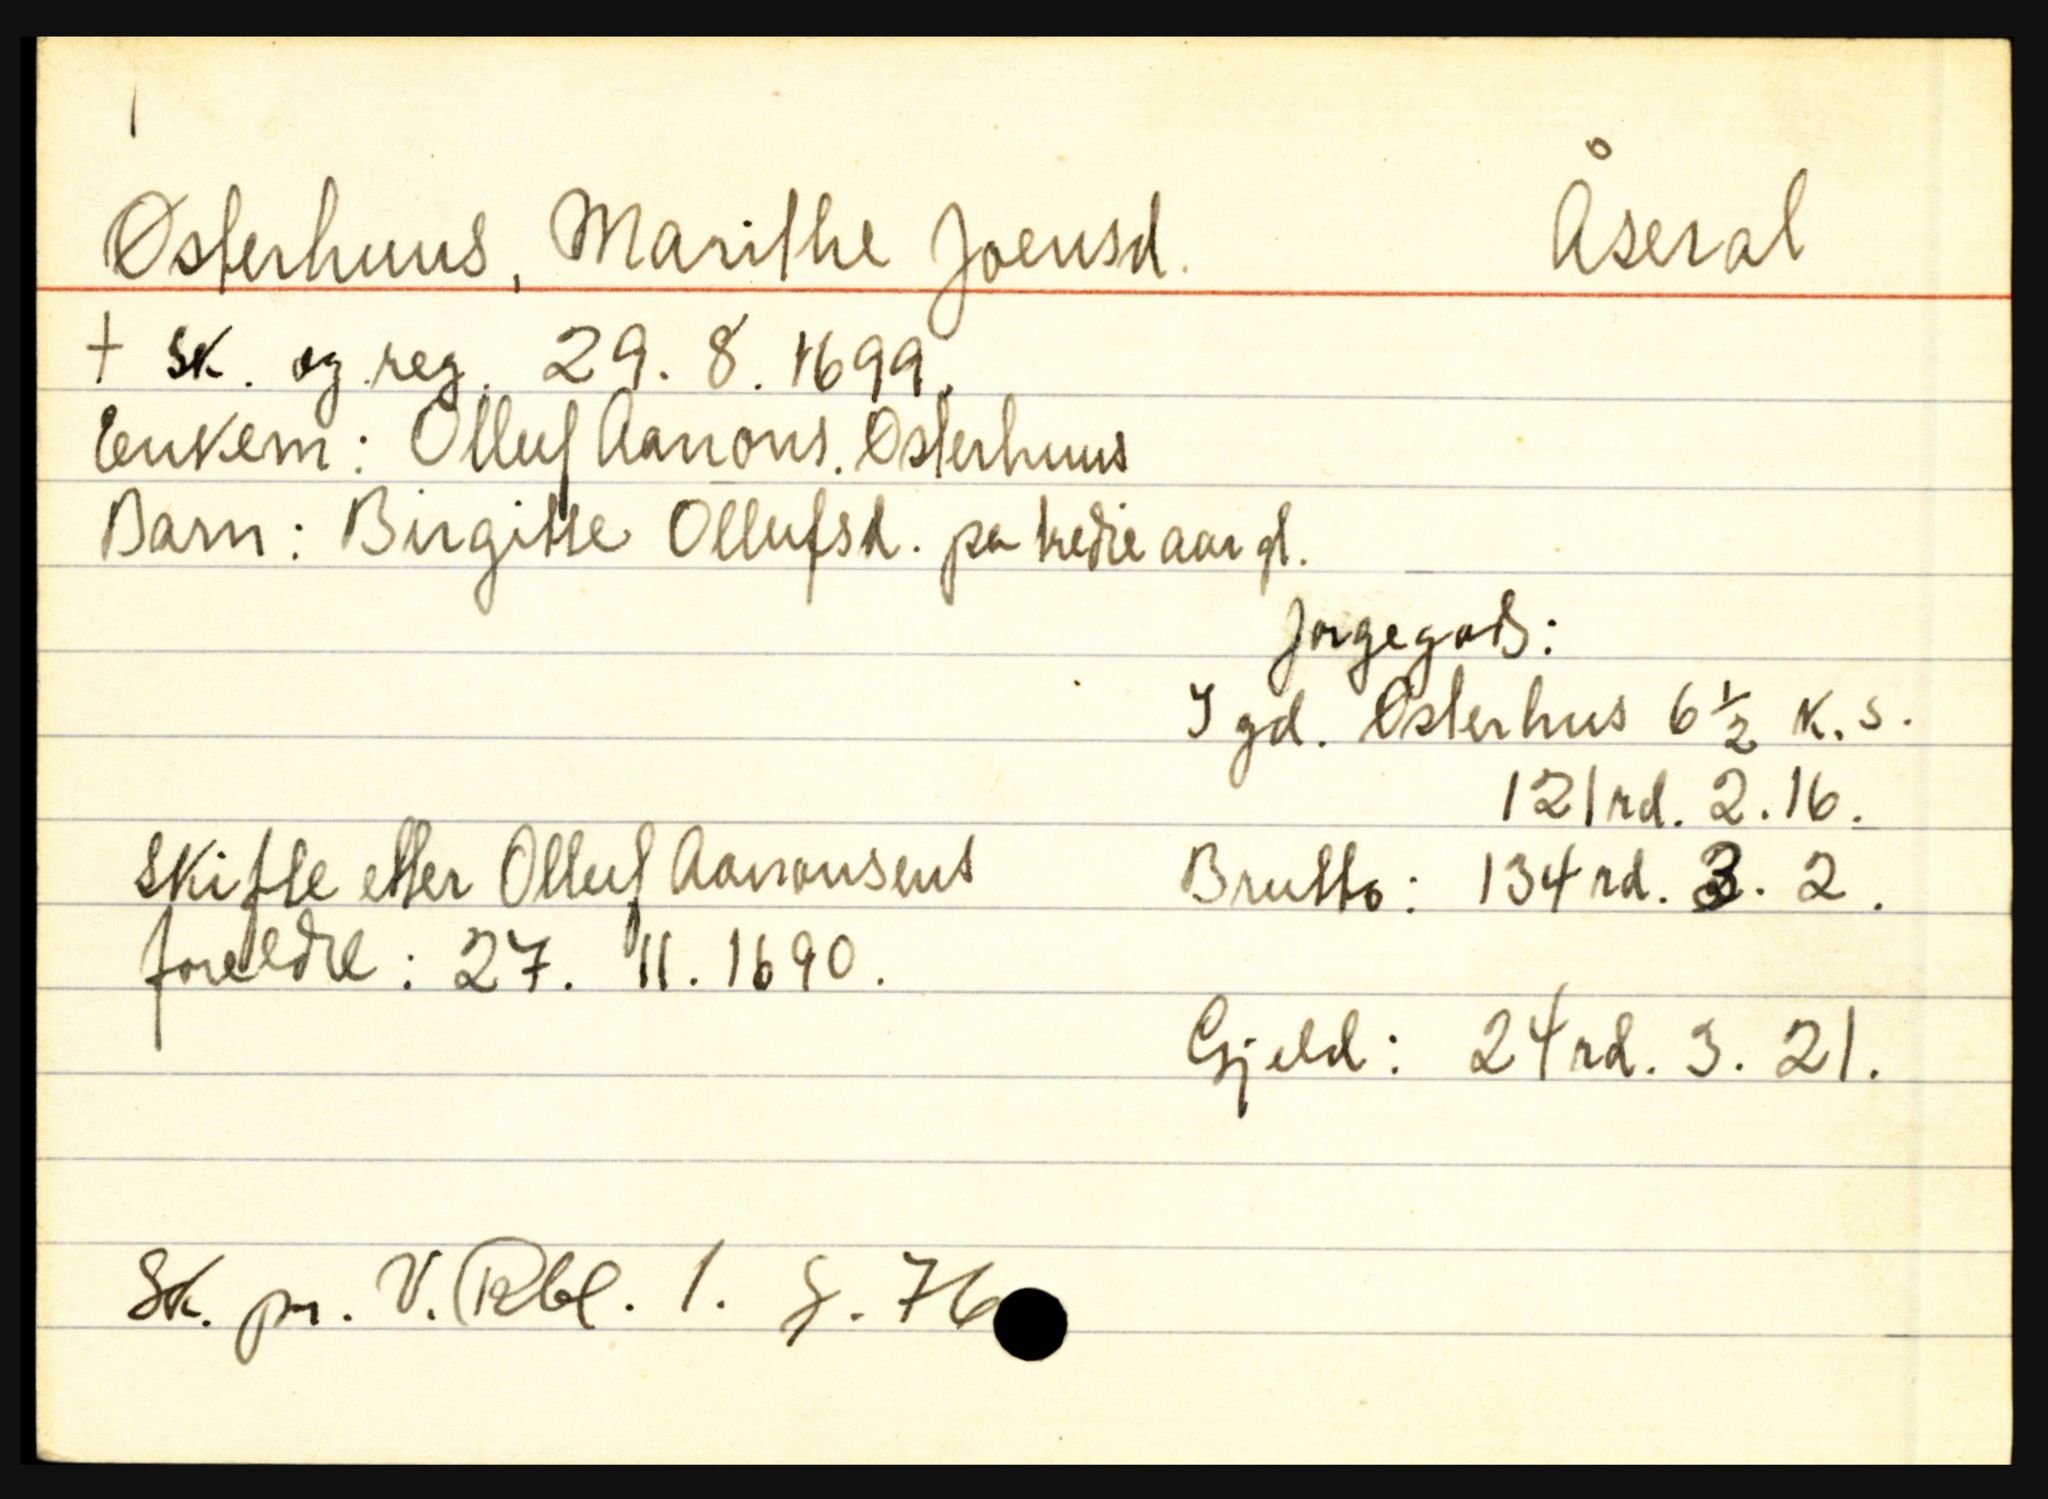 Østerhuus, Marithe Joensd. Åseral
† sk. og reg. 29. 8. 1699.
Enkem: Olluf Aanons. Østerhuus
Barn: Birgitte Ollufsd. pa tredie aar gl.
Jorgegods:
I gd. Østerhus 6 1/2 k. s.
121 rd. 2. 16.
Skifte etter Olluf Aanonsens Brutto: 134 rd. 3. 2.
foreldre: 27. 11. 1690.
Gjeld: 24 rd. 3. 21.
Sk. pr. V. Rbl. 1. f. 76